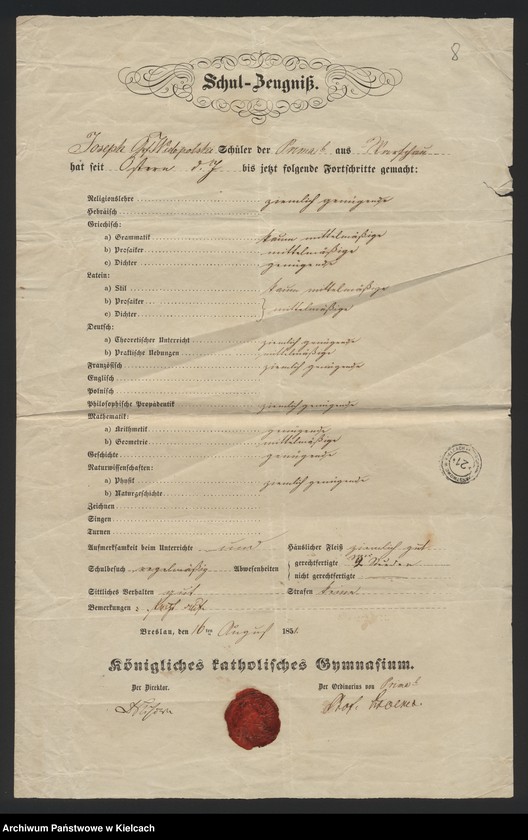 8
Schul-Zeugniß.
Joseph Gf. Wielopolski Schüler der Prima b. aus Warschau
hat seit Ostern d. J. bis jetzt folgende Fortschritte gemacht:
Religionslehre ziemlich genügende
Hebräisch
Griechisch:
a) Grammatik kaum mittelmäßige
b) Prosaiker mittelmäßige
c) Dichter genügende
Latein:
a) Stil kaum mittelmäßige
b) Prosaiker
c) Dichter } mittelmäßige
Deutsch:
a) Theoretischer Unterricht ziemlich genügende
b) Praktische Uebungen mittelmäßige
Französisch ziemlich genügende
Englisch
Polnisch
Philosophische Propädeutik ziemlich genügende
Mathematik:
a) Arithmetik genügende
b) Geometrie mittelmäßige
Geschichte genügende
Naturwissenschaften:
a) Physik ziemlich genügende
b) Naturgeschichte
Zeichnen
Singen
Turnen
Aufmerksamkeit beim Unterrichte Häuslicher Fleiß ziemlich gut
Schulbesuch regelmäßig Abwesenheiten { gerechtfertigte 9 Stunden
nicht gerechtfertigte
Sittliches Verhalten gut Strafen keine
Bemerkungen
Breslau, den 16ten August 185
Königliches katholisches Gymnasium.
Der Direktor. Der Ordinarius von Prima b
Prof.
Archiwum Państwowe w Kielcach
www.szukajwarchiwach.gov.pl